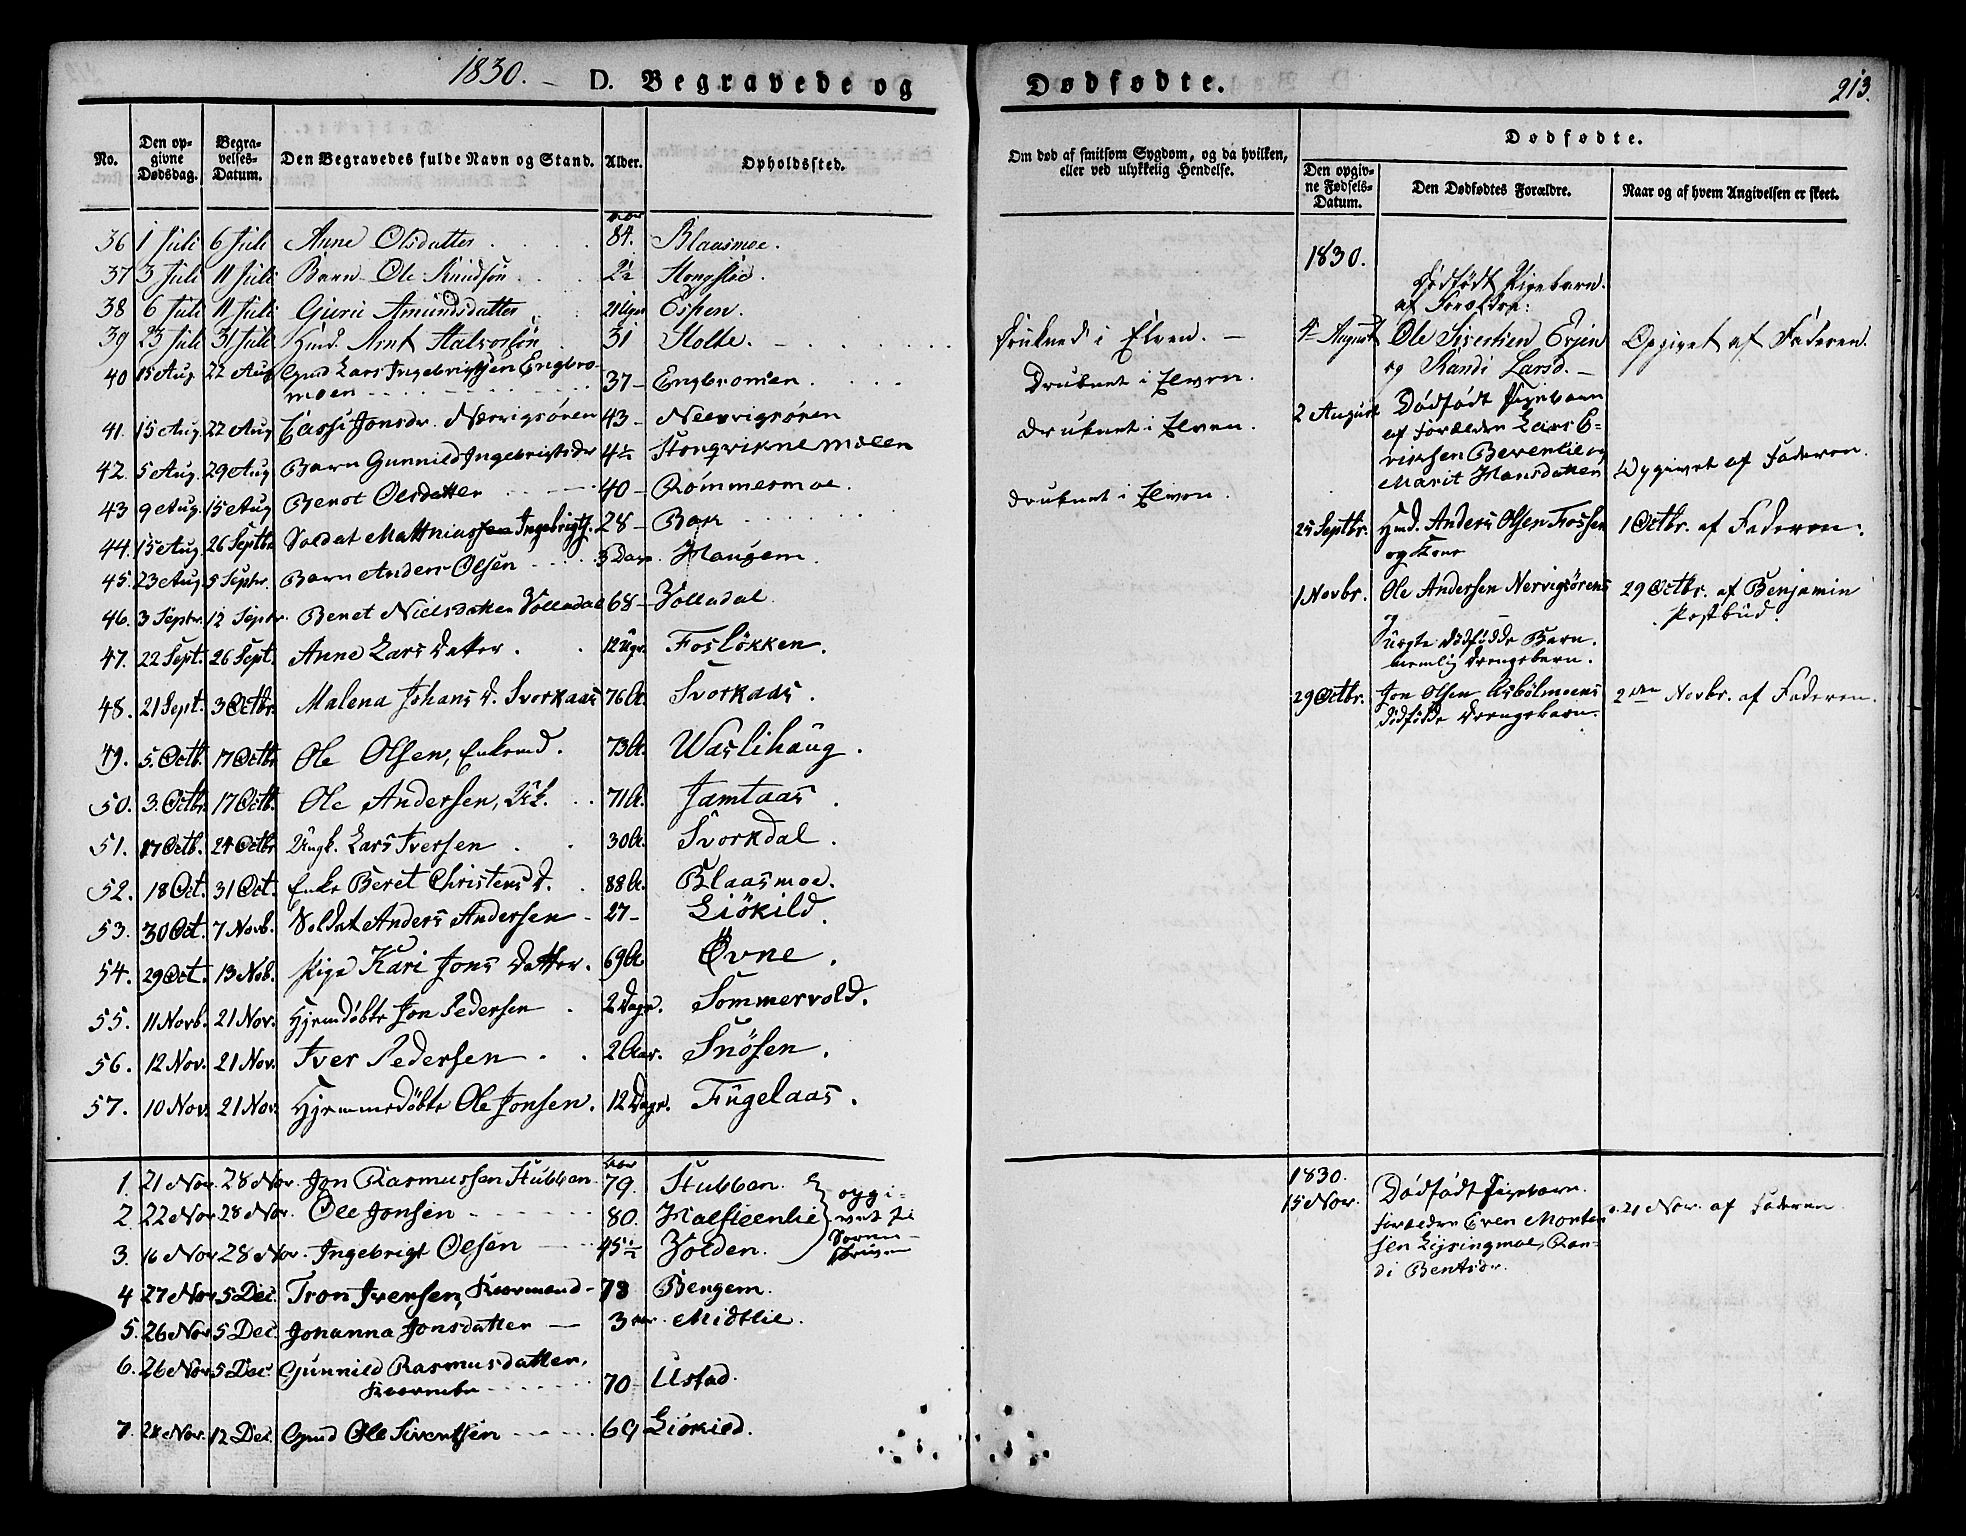 1830. D. Begravede og Dødfødte. 213.
No. Den opgivne Dødsdag. Begravelses-Datum. Den Begravedes fulde Navn og Stand. Alder. Opholdssted.
Om død af smitsom Sygdom, og da hvilken, eller ved ulykkelig Hendelse.
Dødfødte.
Den opgivne Fødsels-Datum. Den Dødfødtes Forældre. Naar og af hvem Angivelsen er skeet.
36 1 Juli 6 Juli Anne Olsdatter 84. Blaasmoe.
37 3 Juli 11 Juli Barn Ole Knudsøn 2½
38 6 Juli 11 Juli Guru Amundsdatter Espen.
39 23 Juli 31 Juli Arnt Halvorsøn 31 Holte.
40 15 Aug. 22 Aug Gmd Lars Ingebrigtsen Engbro-
moen 37 Engbromoen
41. 15 Aug. 22 Aug Jonsdr. Nærvigsøren 43 Neervigsøren
42. 5 Aug. 29 Aug Barn Gunnild Ingebrigtsdr 4½
43 9 Aug. 15 Aug Beret Olsdatter 40 Rømmesmoe.
44. 15 Aug. 26 Septbr Soldat Matthiassen Ingebrigts. 28 Bak
45. 23 Aug 5 Septbr. Barn Anders Olsen 3 Dage Haugem.
46. 3 Septbr. 12 Septbr. Beret Nielsdatter Volladal 68 Volladal.
47. 22 Sept. 26 Sept. Anne Lars Datter. 12 Ugr. Fosløkken.
48. 21 Sept. 3 Octbr. Malena Johans D. Svorkaas 76 A. Svorkaas.
49. 5. Octb. 17 Octb. Ole Olsen, Enkemd. 73 A. Waslihaug.
50. 3. Octbr. 17 Octb. Ole Andersen, 71 A. Jamtaas.
51. 17 Octb. 24 Octbr Ungk. Lars Iversen 30 A. Svorkdal.
52. 18 Oct. 31 Oct. Enke Beret Christens D. 88 A. Blaasmoe.
53. 30 Oct. 7 Novb. Soldat Anders Andersen 27 Liökild.
54. 29 Oct. 13 Nob. Pige Kari Jons Datter. 69 A Øvne.
55. 11 Novb. 21 Nov. Hjemdøbte Jon Pedersen 2 Dage. Sommervold.
56. 12 Nov. 21 Nov. Iver Pedersen 2 Aar. Snösen.
57. 10 Nov. 21 Nov. Hjemmedøbte Ole Jonsen. 12 Dage. Fugelaas.
1. 21 Nov. 28 Nov. Jon Rasmussen Stubben 79. Stubben.
2. 22 Nov 28 Nov. Ole Jonsen 80. Halsteenlie
3. 16 Nov 28 Nov. Ingebrigt Olsen 45½ Volden.
4 27 Nov 5 Dec. Tron Iversen, 78 Bergem.
5. 26 Nov 5 Dec. Johanna Jonsdatter 3 Midtlie.
6. 26 Nov 5 Dec. Gunnild Rasmusdatter, 70 Ustad.
7. 28 Nov. 12 Dec. Gmd Ole Sivertsen 69 Liökild.
Druknet i Elven.
Druknet i Elven.
druknet i Elven.
druknet i Elven.
1830.
Dødfødt Pigebarn.
af Forældre:
4 August Ole Sivertsen Evjen
og Randi Larsd. Opgivet af Faderen.
2 August Dødfødt Pigebarn
af Forældre Lars E-
riksen Beverlie og
Marit Hansdatter Opgivet af Faderen.
25 Septbr. Hmd. Anders Olsen Fossen
og Kone 1 Octbr. af Faderen.
1 Novbr. Ole Andersen Nervigsørens 29 Octbr. af Benjamin
Postbud.
Uægte dødfødde Barn.
nemlig Drengebarn.
29 Octbr. Jon Olsen Asbölmoens
dödfödde Drengebarn. 2den Novbr. af Faderen.
1830.
15 Nov. Dødfødt Pigebarn.
Forældre Even Morten
sen Lysingmoe, Ran-
di Bentsdr. 21 Nov. af Faderen.